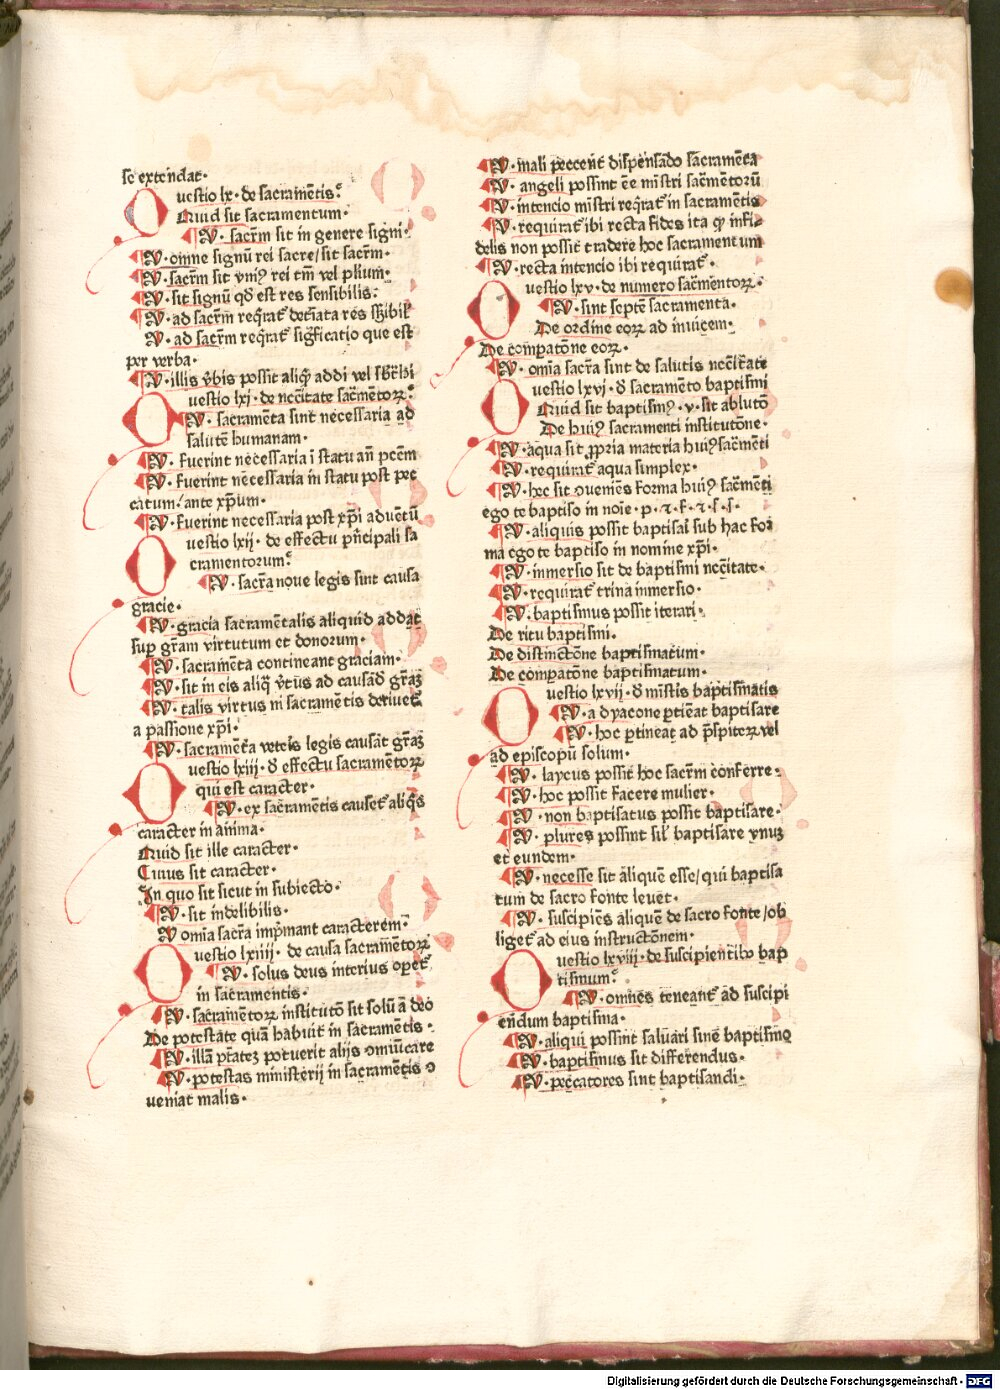 se extendat·
Questio lx· de sacramētis:
Quid sit sacramentum·
V· sacr̄m sit in genere signi·
V· omne signū rei sacre/ sit sacr̄m·
V· sacr̄m sit vniꝰ rei tm̄ vel pliūm·
V· sit signū qd̄ est res sensibilis·
V· ad sacr̄m reqͥrat᷑ det͛iata res
V· ad sacr̄m reqͥrat᷑ sigͥficatio que est
per verba·
V· illis v͛bis possit aliqͥd addi vel
Questio lxi· de necc̄itate sacr̄mentoꝝ:
V· sacramēta sint necessaria ad
salutē humanam·
V· fuerint necessaria ī statu an̄ pctēm
V· fuerint necessaria in statu post pec
catum/ ante xp̄um·
V· fuerint necessaria post xp̄i aduētū
Questio lxii· de effectu pͥncipali sa
cramentorum:
V· sacr̄a noue legis sint causa
gracie·
V· gracia sacramētalis aliquid addat
sup̱ gr̄am virtutum et donorum·
V· sacramēta contineant graciam·
V· sit in eis aliqͣ v͛tus ad causād̄ gr̄aꝫ
V· talis virtus in sacramētis deriuet᷑
a passione xp̄i·
V· sacramēta vet͛is legis causāt gr̄aꝫ
Questio lxiii· d̄ effectu sacramētoꝝ
qui est caracter·
V· ex sacramētis causet᷑ aliqͥs
caracter in anima·
Quid sit ille caracter·
Cuius sit caracter·
In quo sit sicut in subiecto·
V· sit indelibilis·
V omīa sacr̄a impͥmant caracterem·
Questio lxiiii· de causa sacramētoꝝ
V· solus deus interius opet᷑
in sacramentis·
V· sacramētoꝝ institutō sit solū a deo
De potestate quā habuit in sacramētis·
V· illā pt̄ateꝫ potuerit alijs ꝯmūicare
V· potestas ministerij in sacramētis ꝯ
ueniat malis·
V· mali peccent dispēsādo sacramēta
V· angeli possint ēe mīstri sacr̄mentorū
V· intencio mīstri reqͥrat᷑ in sacramētis
V· requirat᷑ ibi recta fides ita ꝙ infi-
delis non possit tradere hoc sacramentum
V· recta intencio ibi requirat᷑·
Questio lxv· de numero sacr̄mentoꝝ·
V· sint septē sacramenta·
De ordine eoꝝ ad inuicem·
De compatōne eoꝝ·
V· omīa sacr̄a sint de salutis necc̄itate
Questio lxvj· d̄ sacramēto baptismi
Quid sit baptismꝰ· v· sit ablutō
De huiꝰ sacramenti institutōne·
V· aqua sit ꝓpria materia huiꝰ sacr̄mēti
V· requirat᷑ aqua simplex·
V· hec sit ꝯueniēs forma huiꝰ sacr̄mēti
ego te baptiso in noīe· p· ⁊· f· ⁊· s· s·
V· aliquis possit baptisaī sub hac for
ma ego te baptiso in nomine xp̄i·
V· inmersio sit de baptismi necc̄itate·
V· requirat᷑ trina inmersio·
V· baptismus possit iterari·
De ritu baptismi·
De distinctōne baptismatum·
De compatōne baptismatum·
Questio lxvii· d̄ mīstis baptism̄atis
V· a dyacone ꝑtīeat baptisare
V· hoc ꝑtineat ad p̄sbiteꝝ vel
ad episcopū solum·
V· laycus possit hoc sacr̄m conferre·
V· hoc possit facere mulier·
V· non baptisatus possit baptisare·
V· plures possint sil̄ baptisare vnuꝫ
et eundem·
V· necesse sit aliquē esse/ qui baptisa
tum de sacro fonte leuet·
V· suscipiēs aliquē de sacro fonte/ ob
liget᷑ ad eius instructōnem·
Questio lxviii· de suscipientibꝰ bap
tismum:
V· omnes teneant᷑ ad suscipi
endum baptisma·
V· aliqui possint saluari sine baptismo
V· baptismus sit differendus·
V· peccatores sint baptisandi·
Digitalisierung gefördert durch die Deutsche Forschungsgemeinschaft - DFG